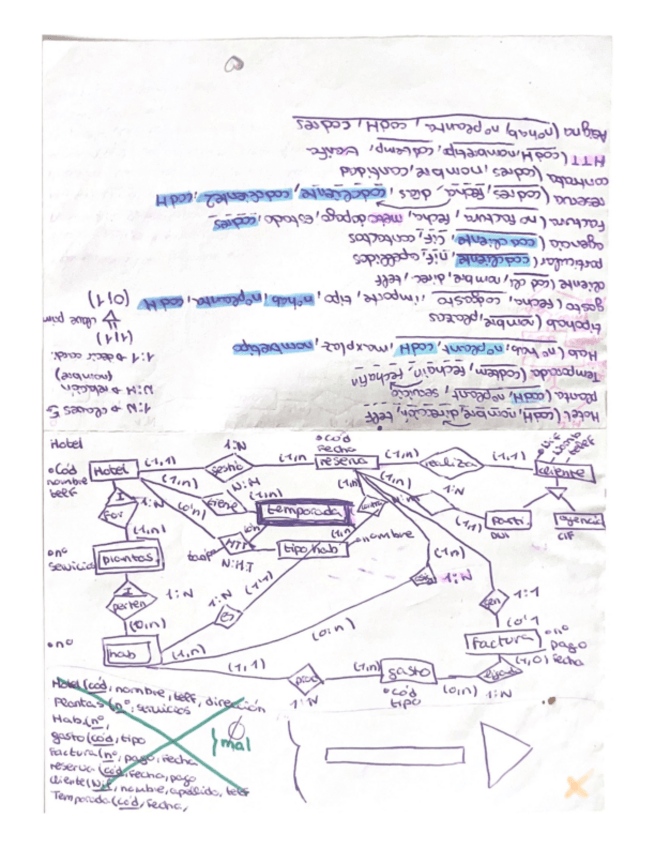 Hotel (codH, nombre, dirección, telf
planta (codH, nºplant, servicio
Temporada (codtem, fechain, fechafin
Hab (nºhab, nºplant, codH, maxplaz, nombretipo
tipohab (nombre, plazas
gasto (fecha, codgasto, importe, tipo, nºhab, nºplanta, codH
cliente (cod cli, nombre, direc, telf
particular (codcliente, nif, apellidos
agencia (codcliente, cif, contactos
factura (nº factura, fecha, mét. pago, estado, codres
reserva (codres, fecha, días, codcliente, codcliente2, codH
contrata (codres, nombre, cantidad
HTT (codH, nombretip, codtemp, tarifa
Asigna (nºhab, nºplanta, codH, codres
1:N → claves 5
N:M → relación
(nombre)
1:1 → decir cardi.
(1,1)
(0,1)
Hotel
•Cód
nombre
telf
Hotel
(1,1)
1:N
(1,n)
•cód
fecha
reserva
(1,1)
realiza
(1,1)
nomb
telf
cliente
I
1:N
(1,n)
tiene
N:M
(1,n)
temporada
(0,n)
HTT
N:M:1
tipo hab
•nombre
(1,n)
1:N
(1,1)
Parti.
DNI
agencia
CIF
•nº
servicio
plantas
I
perten
1:N
(0,n)
•nº
hab
1:N
es
(1,1)
(0,n)
(1,n)
1:N
1:1
(0,1)
factura
•nº
pago
fecha
(1,0)
(1,1)
1:N
(1,n)
gasto
•cód
tipo
(0,n)
1:N
Hotel (cód, nombre, telf, dirección
Plantas (nº, servicios
Hab (nº,
gasto (cód, tipo
Factura (nº, pago, fecha
reserva (cód, fecha, pago
cliente (Nif, nombre, apellido, telf
Temporada (cód, fecha,
mal